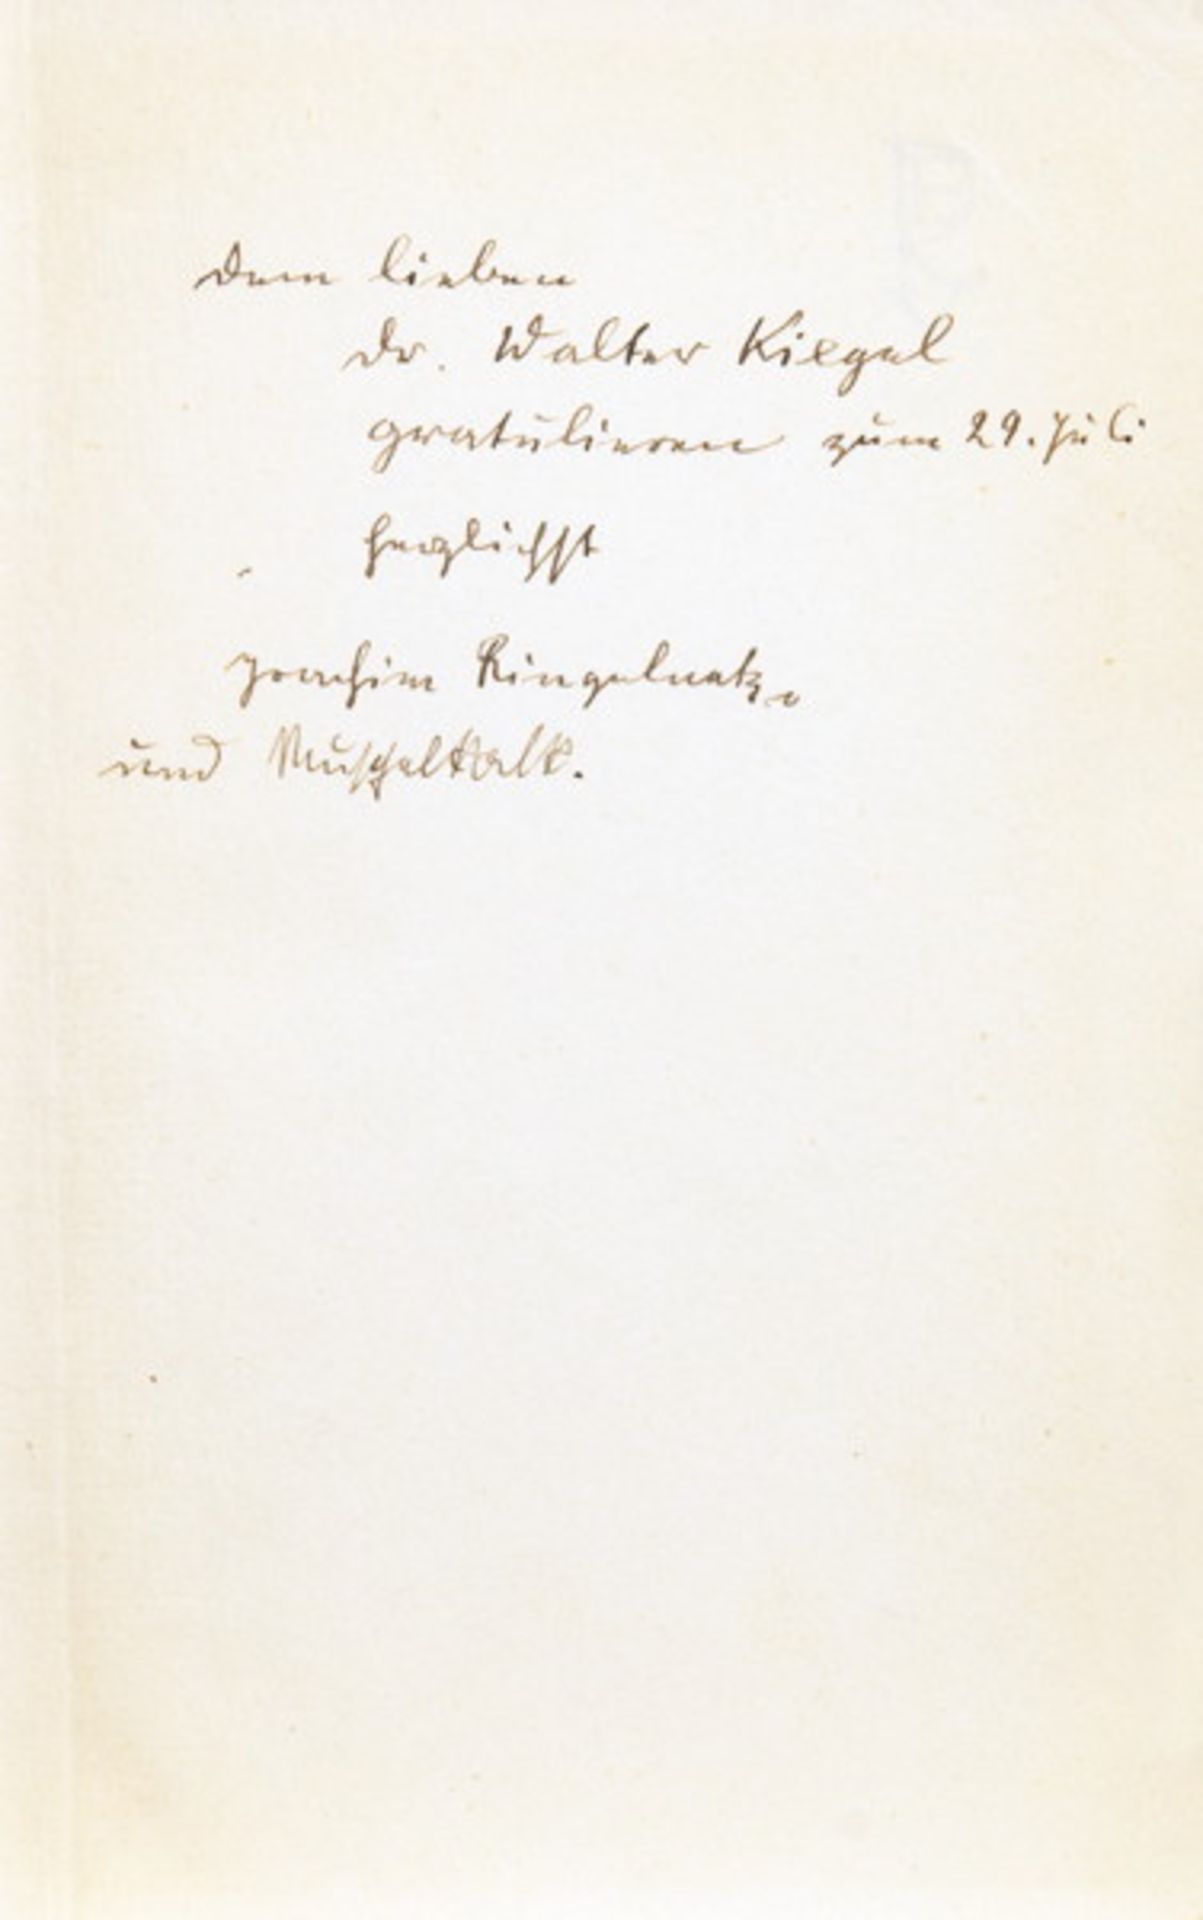 Dem lieben
Dr. Walter Kiegel
gratulieren zum 29. Juli
herzlichst
Joachim Ringelnatz
und Muschelkalk.